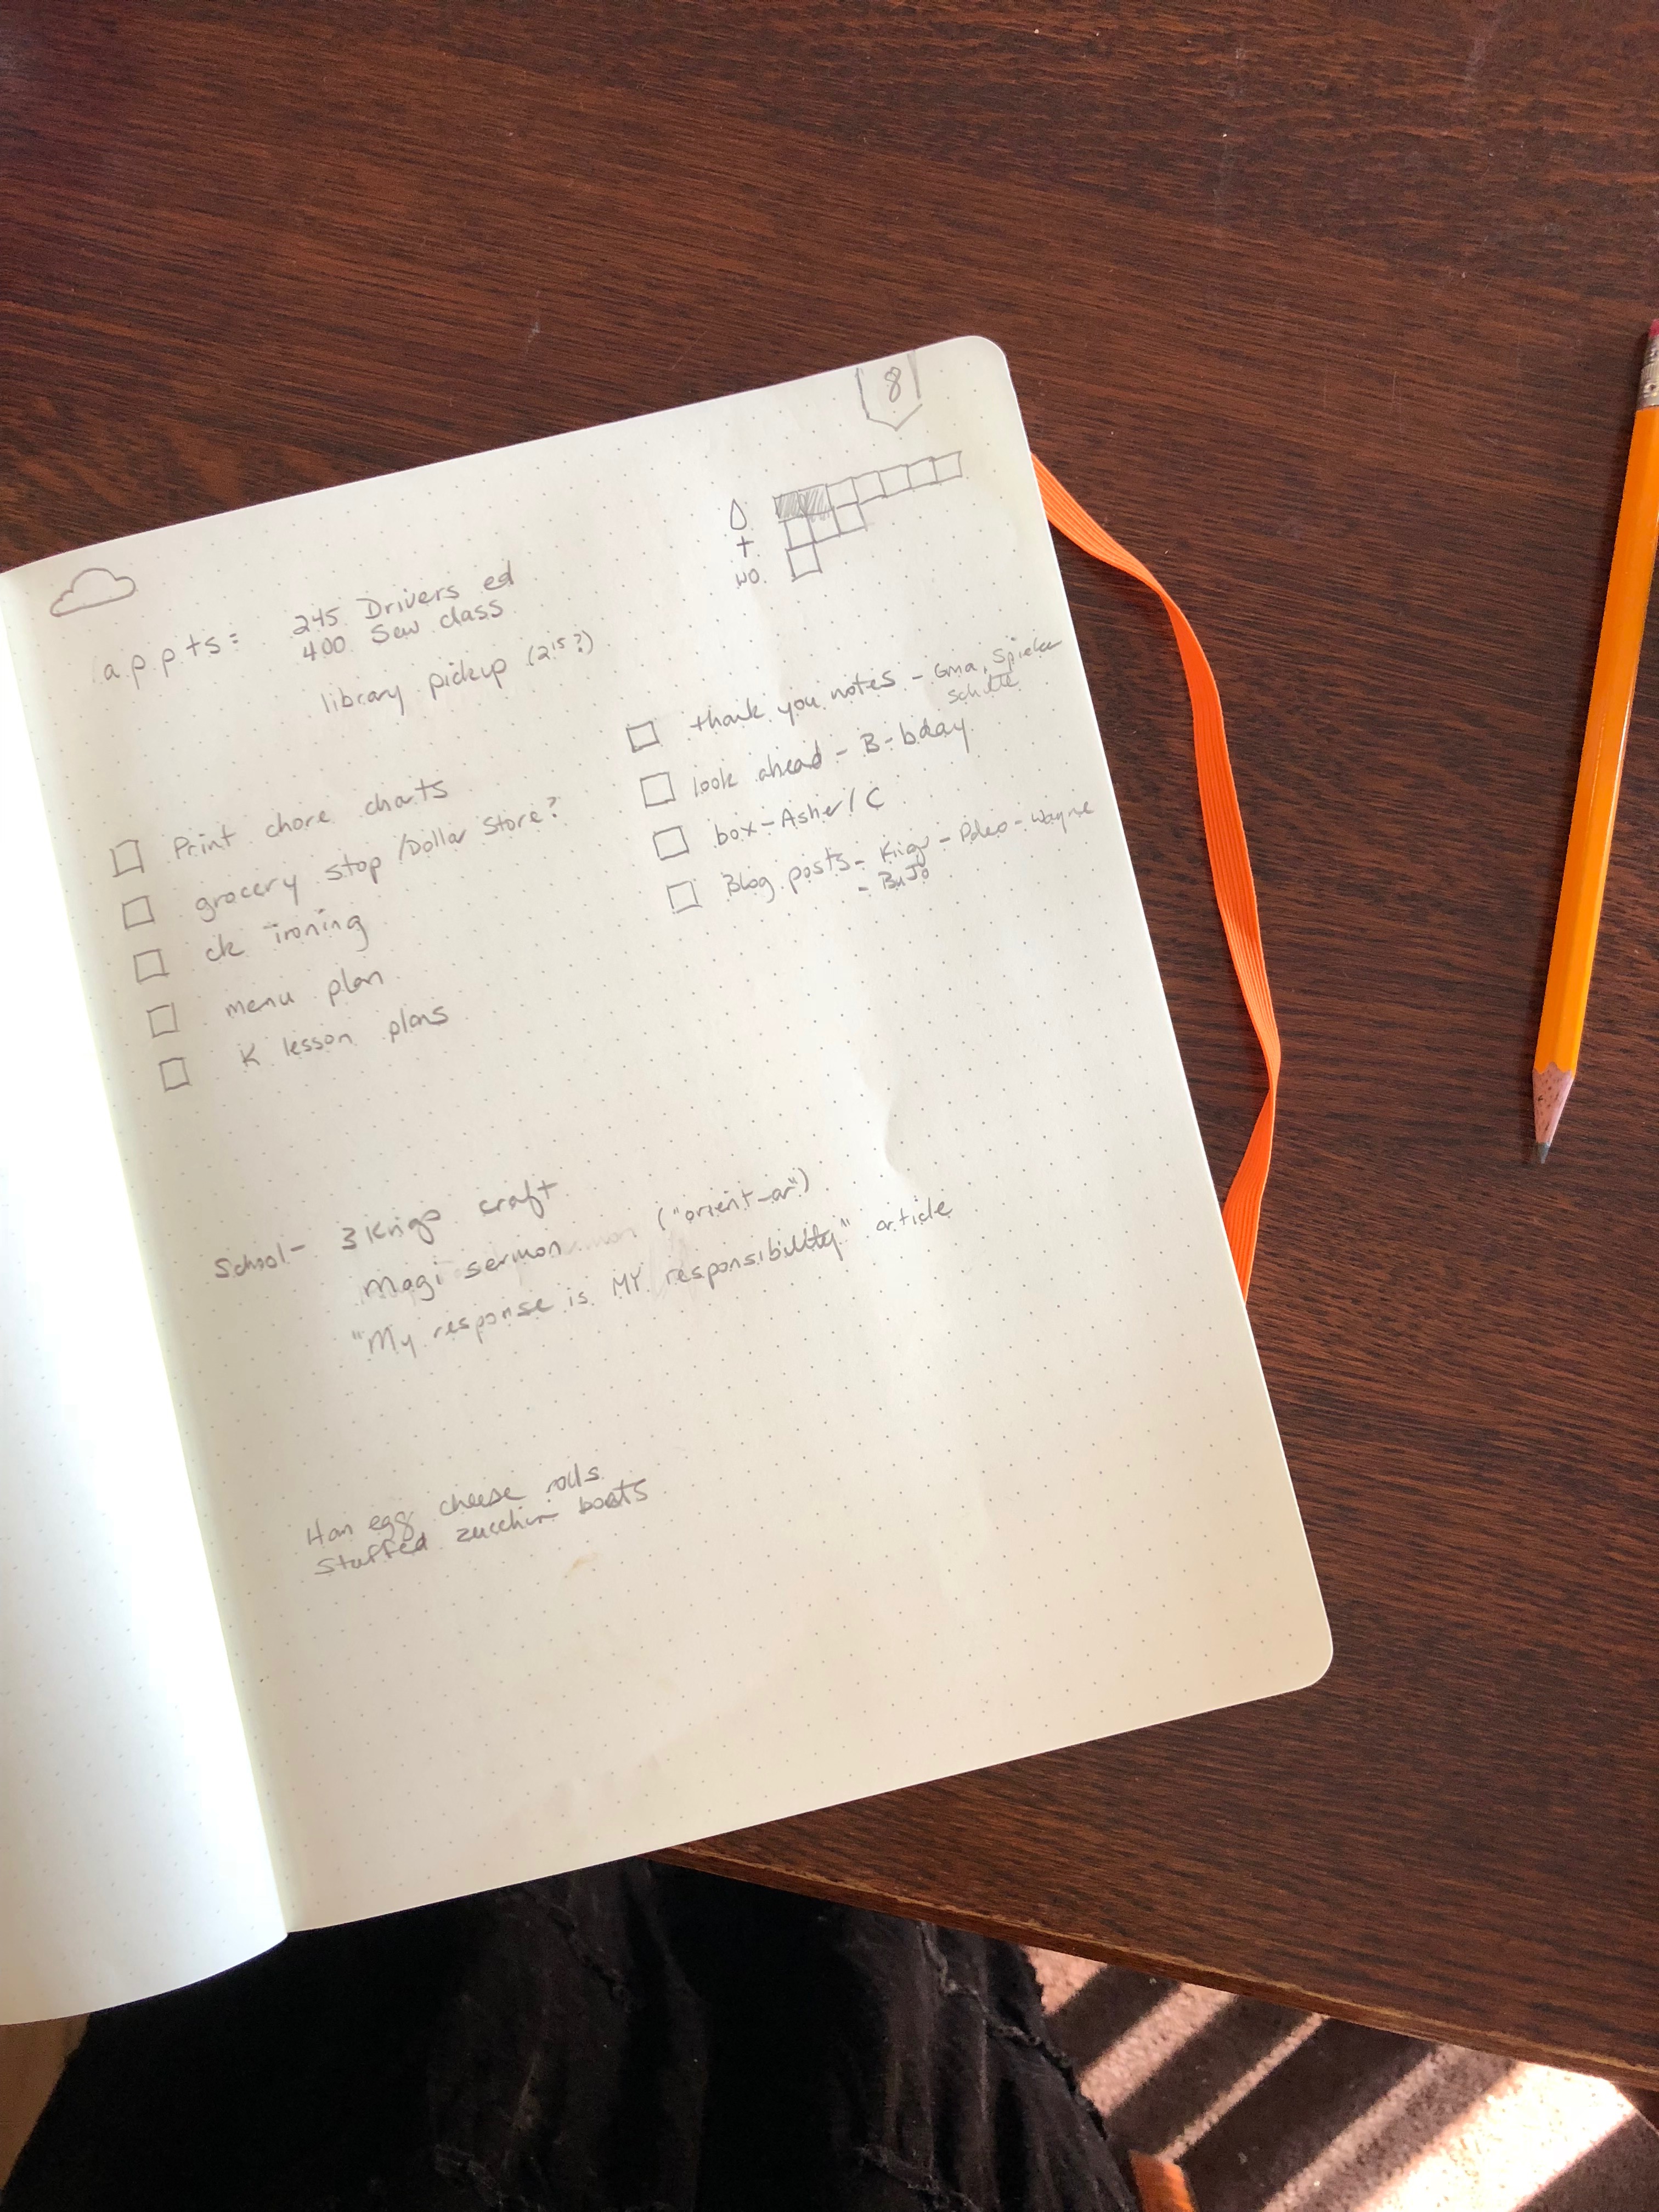 8
wo.
appts:
245 Drivers ed
400 Sew class
library pickup (2¹⁵?)
Print chore charts
grocery stop /Dollar Store?
ck ironing
menu plan
K lesson plans
thank you notes - Gma, Spieker
look ahead - B-bday
box - Asher / C
Blog posts - - Paleo - Wayne
- BuJo
School - 3 Kings craft
Magi sermon ("orient-ar")
"My response is MY responsibility" article
Ham egg cheese rolls
Stuffed zucchini boats